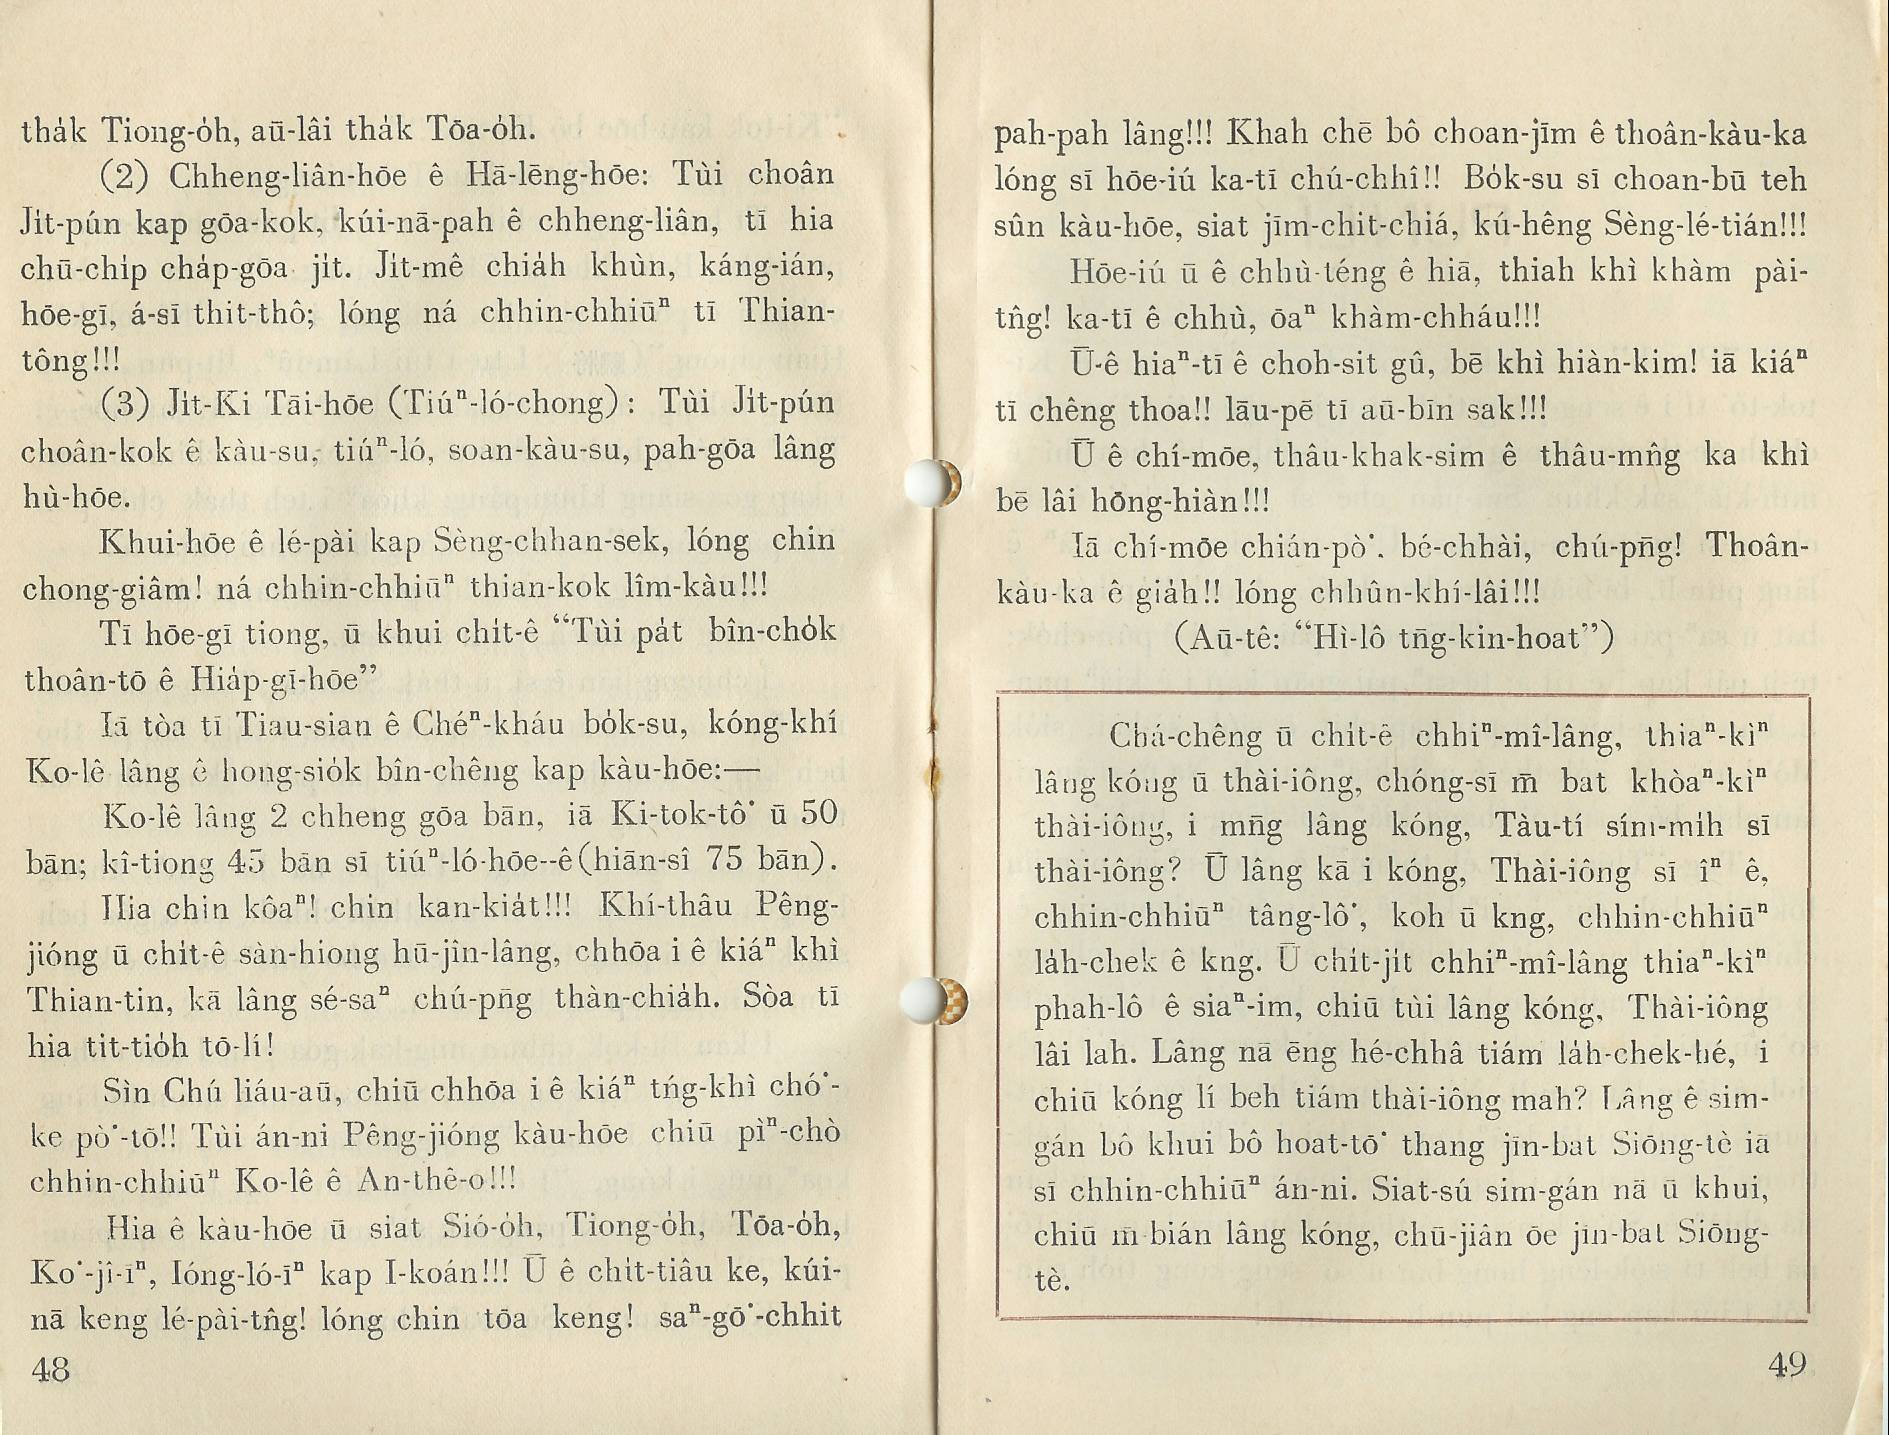 tha̍k Tiong-o̍h, aū-lâi tha̍k Tōa-o̍h.
(2) Chheng-liân-hōe ê Hā-lēng-hōe: Tùi choân
Ji̍t-pún kap gōa-kok, kúi-nā-pah ê chheng-liân, tī hia
chū-chi̍p cha̍p-gōa ji̍t. Ji̍t-mê chia̍h khùn, káng-ián,
hōe-gī, á-sī thit-thô; lóng ná chhin-chhiūⁿ tī Thian-
tông!!!
(3) Ji̍t-Ki Tāi-hōe (Tiúⁿ-ló-chong): Tùi Ji̍t-pún
choân-kok ê kàu-su, tiúⁿ-ló, soan-kàu-su, pah-gōa lâng
hù-hōe.
Khui-hōe ê lé-pài kap Sèng-chhan-sek, lóng chin
chong-giâm! ná chhin-chhiūⁿ thian-kok lîm-kàu!!!
Tī hōe-gī tiong, ū khui chi̍t-ê “Tùi pa̍t bîn-cho̍k
thoân-tō ê Hia̍p-gī-hōe”
Iā tòa tī Tiau-sian ê Chéⁿ-kháu bo̍k-su, kóng-khí
Ko-lê lâng ê hong-sio̍k bîn-chêng kap kàu-hōe:—
Ko-lê lâng 2 chheng gōa bān, iā Ki-tok-tô͘ ū 50
bān; kî-tiong 45 bān sī tiúⁿ-ló-hōe--ê(hiān-sî 75 bān).
Hia chin kôaⁿ! chin kan-kia̍t!!! Khí-thâu Pêng-
jióng ū chi̍t-ê sàn-hiong hū-jîn-lâng, chhōa i ê kiáⁿ khì
Thian-tin, kā lâng sé-saⁿ chú-pn̄g thàn-chia̍h. Sòa tī
hia tit-tio̍h tō-lí!
Sìn Chú liáu-aū, chiū chhōa i ê kiáⁿ tńg-khì chó͘-
ke pò͘-tō!! Tùi án-ni Pêng-jióng kàu-hōe chiū pìⁿ-chò
chhin-chhiūⁿ Ko-lê ê An-thê-o!!!
Hia ê kàu-hōe ū siat Sió-o̍h, Tiong-o̍h, Tōa-o̍h,
Ko͘-jî-īⁿ, Ióng-ló-īⁿ kap I-koán!!! Ū ê chi̍t-tiâu ke, kúi-
nā keng lé-pài-tn̂g! lóng chin tōa keng! saⁿ-gō͘-chhit
48
pah-pah lâng!!! Khah chē bô choan-jīm ê thoân-kàu-ka
lóng sī hōe-iú ka-tī chú-chhî!! Bo̍k-su sī choan-bū teh
sûn kàu-hōe, siat jīm-chit-chiá, kú-hêng Sèng-lé-tián!!!
Hōe-iú ū ê chhù-téng ê hiā, thiah khì khàm pài-
tn̂g! ka-tī ê chhù, ōaⁿ khàm-chháu!!!
Ū-ê hiaⁿ-tī ê choh-sit gû, bē khì hiàn-kim! iā kiáⁿ
tī chêng thoa!! lāu-pē tī aū-bīn sak!!!
Ū ê chí-mōe, thâu-khak-sim ê thâu-mn̂g ka khì
bē lâi hōng-hiàn!!!
Iā chí-mōe chián-pò͘. bé-chhài, chú-pn̄g! Thoân-
kàu-ka ê gia̍h!! lóng chhûn-khí-lâi!!!
(Aū-tê: “Hì-lô tn̄g-kin-hoat”)
Chá-chêng ū chi̍t-ê chhiⁿ-mî-lâng, thiaⁿ-kìⁿ
lâng kóng ū thài-iông, chóng-sī m̄ bat khòaⁿ-kìⁿ
thài-iông, i mn̄g lâng kóng, Tàu-tí sím-mi̍h sī
thài-iông? Ū lâng kā i kóng, Thài-iông sī îⁿ ê,
chhin-chhiūⁿ tâng-lô͘, koh ū kng, chhin-chhiūⁿ
la̍h-chek ê kng. Ū chi̍t-ji̍t chhiⁿ-mî-lâng thiaⁿ-kìⁿ
phah-lô ê siaⁿ-im, chiū tùi lâng kóng, Thài-iông
lâi lah. Lâng nā ēng hé-chhâ tiám la̍h-chek-hé, i
chiū kóng lí beh tiám thài-iông mah? Lâng ê sim-
gán bô khui bô hoat-tō͘ thang jīn-bat Siōng-tè iā
sī chhin-chhiūⁿ án-ni. Siat-sú sim-gán nā ū khui,
chiū m̄-bián lâng kóng, chū-jiân ōe jīn-bat Siōng-
tè.
49